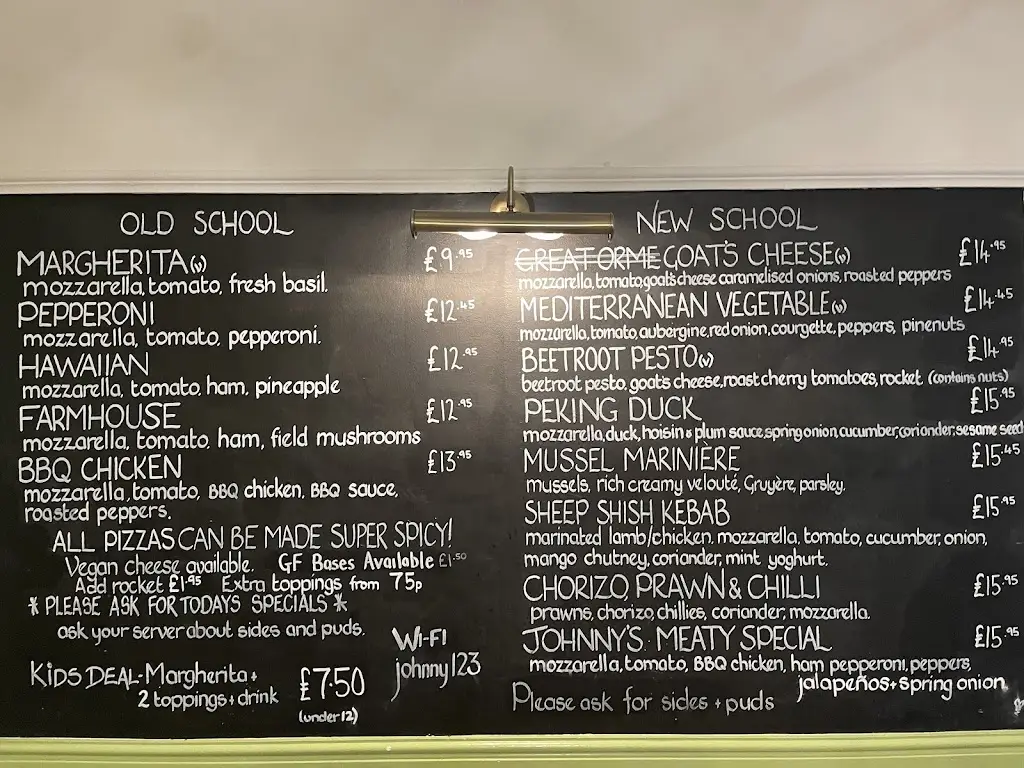 OLD SCHOOL
MARGHERITA(v) £9.95
mozzarella, tomato, fresh basil.
PEPPERONI £12.45
mozzarella, tomato, pepperoni.
HAWAIIAN £12.95
mozzarella, tomato, ham, pineapple
FARMHOUSE £12.95
mozzarella, tomato, ham, field mushrooms
BBQ CHICKEN £13.95
mozzarella, tomato, BBQ chicken, BBQ sauce,
roasted peppers.
ALL PIZZAS CAN BE MADE SUPER SPICY!
Vegan cheese available. GF Bases Available £1.50
Add rocket £1.95 Extra toppings from 75p
* PLEASE ASK FOR TODAYS SPECIALS *
ask your server about sides and puds.
KIDS DEAL-Margherita + £7.50
2 toppings + drink
(under 12)
WI-FI
johnny123
NEW SCHOOL
GREAT ORME GOAT'S CHEESE(v) £14.95
mozzarella, tomato, goat's cheese caramelised onions, roasted peppers
MEDITERRANEAN VEGETABLE(v) £14.45
mozzarella, tomato, aubergine, red onion, courgette, peppers, pinenuts
BEETROOT PESTO(v) £14.95
beetroot pesto, goat's cheese, roast cherry tomatoes, rocket (contains nuts)
PEKING DUCK £15.95
mozzarella, duck, hoisin & plum sauce, spring onion, cucumber, coriander, sesame seed
MUSSEL MARINIERE £15.45
mussels, rich creamy velouté, Gruyère, parsley.
SHEEP SHISH KEBAB £15.95
marinated lamb/chicken, mozzarella, tomato, cucumber, onion,
mango chutney, coriander, mint yoghurt.
CHORIZO, PRAWN & CHILLI £15.95
prawns, chorizo, chillies, coriander, mozzarella.
JOHNNY'S MEATY SPECIAL £15.95
mozzarella, tomato, BBQ chicken, ham pepperoni, peppers,
jalapeños + spring onion
Please ask for sides + puds